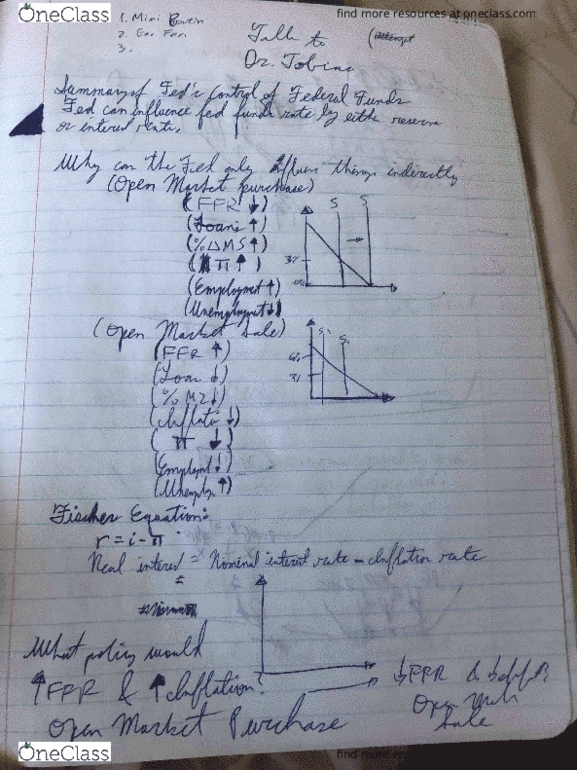 OneClass
find more resources at oneclass.com
1. Mimi
2.
3.
Talk to (attempt
Dr. Tobias
Summary of Fed's Control of Federal Funds
Fed can influence fed funds rate by either reserve
or interest rate.
Why can the Fed only influens things indirectly
(Open Market purchase)
(FFR ↓)
(Loans ↑)
(%ΔMS ↑)
(π ↑)
(Employment ↑)
(Unemployment ↓)
S S
3%
0%
(Open Market Sale)
(FFR ↑)
(Loan ↓)
(% M2 ↓)
(Inflati ↓)
(π ↓)
(Employmt ↓)
(Unemploy ↑)
Fischer Equation:
r = i - π
Real interest = Nominal interest rate - Inflation rate
=
What policy would
↑FFR & ↑Inflation?
Open Market Purchase
↓FFR &
Open
Sale
OneClass
find more